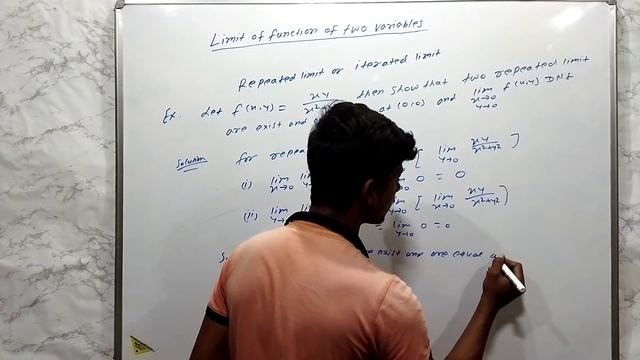 Limit of function of two variables
Repeated limit or iterated limit
Ex. Let f(x,y) = xy/x²+y² then show that two repeated limit
are exist and at (0,0) and lim x→0 y→0 f(x,y) DNE
Solution for repea [ lim y→0 xy/x²+y² ]
(i) lim x→0 lim 0 = 0
(ii) lim y→0 lim [ lim x→0 xy/x²+y² ]
= lim y→0 0 = 0
exist and are equal